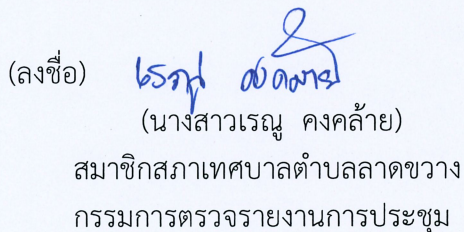 (ลงชื่อ) เรณู คงคล้าย
(นางสาวเรณู คงคล้าย)
สมาชิกสภาเทศบาลตำบลลาดขวาง
กรรมการตรวจรายงานการประชุม